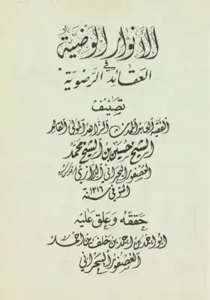 الانوار الوضية
في
العقائد الرضوية
تصنيف
الفقيه العابد المحدث الزاهد المولى القائد
الشيخ حسين بن الشيخ محمد
العصفور البحراني الدرازي
المتوفى سنة ١٢١٦
حققه وعلق عليه
ابو احمد بن احمد بن خلف بن احمد
العصفور البحراني